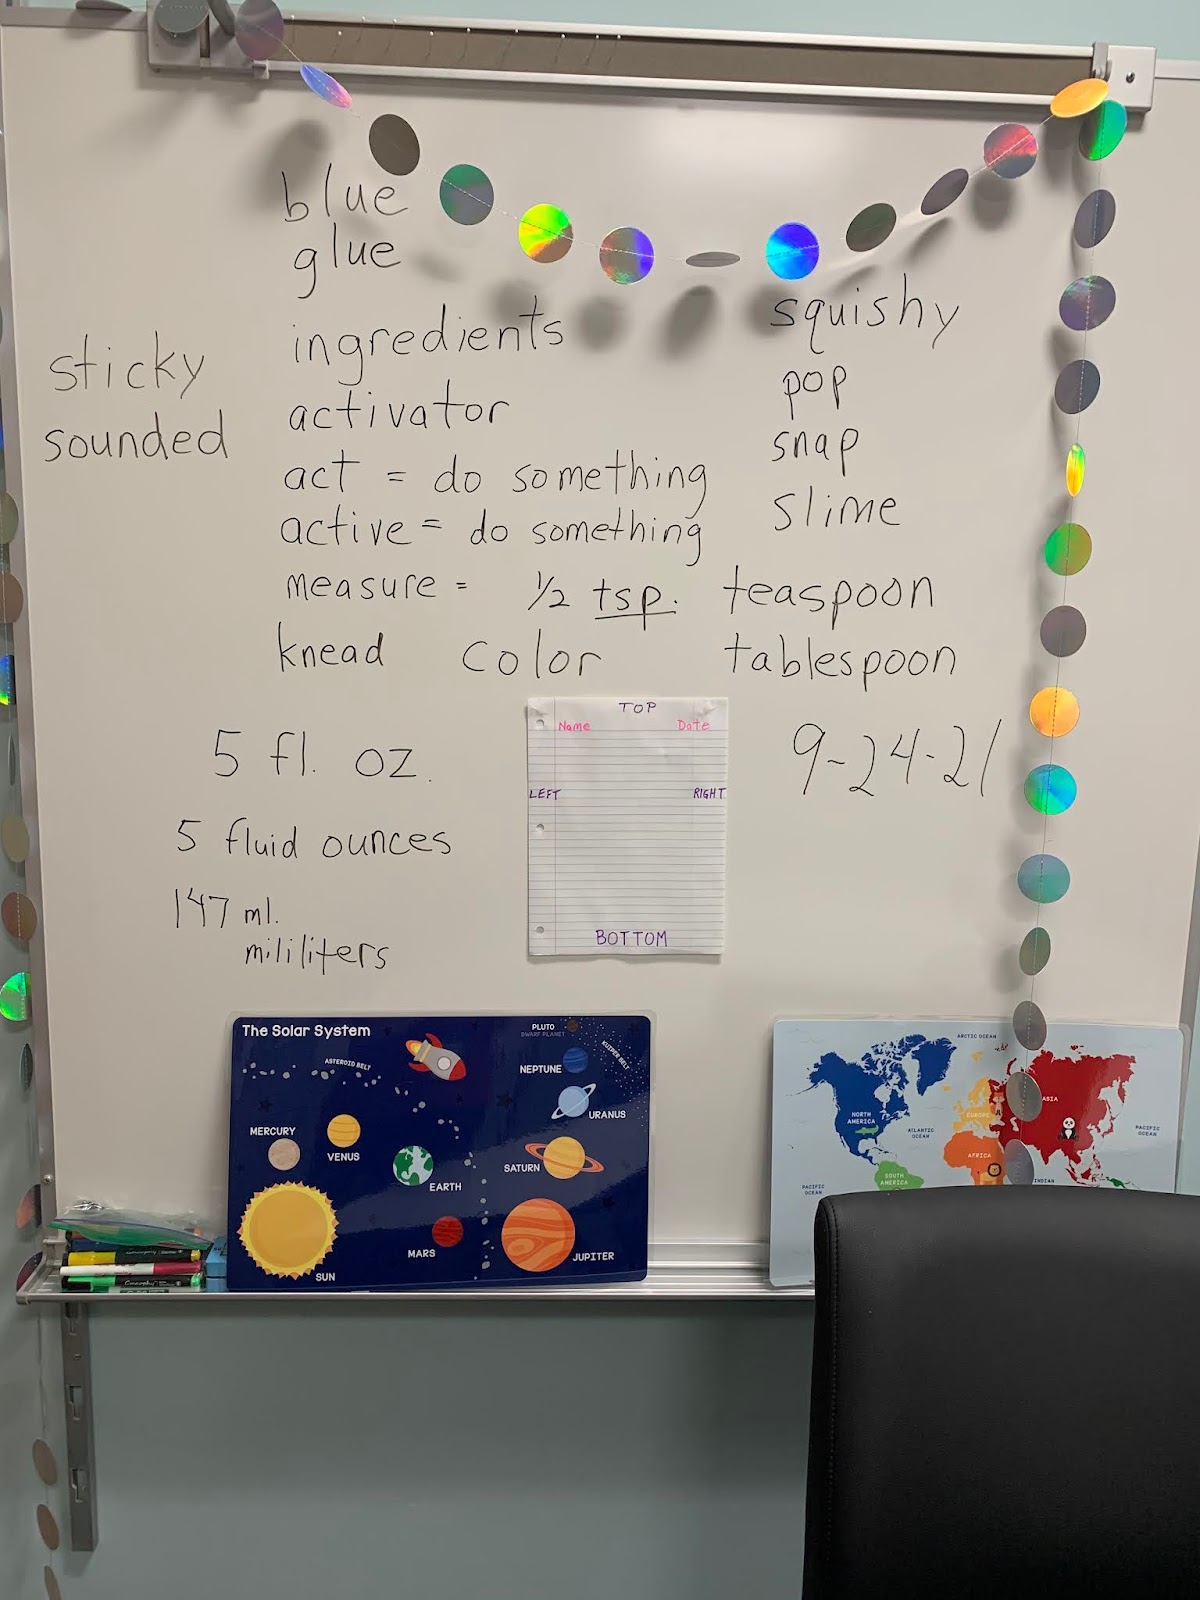 blue
glue
ingredients
squishy
sticky
activator
pop
sounded
snap
act = do something
slime
active = do something
measure = 1/2 tsp. teaspoon
knead color tablespoon
TOP
Name Date
LEFT RIGHT
BOTTOM
9-24-21
5 fl. oz.
5 fluid ounces
147 ml.
mililiters
The Solar System
PLUTO
DWARF PLANET
ASTEROID BELT
KUIPER BELT
NEPTUNE
URANUS
MERCURY
VENUS
SATURN
EARTH
MARS
JUPITER
SUN
ARCTIC OCEAN
NORTH AMERICA
EUROPE
ASIA
ATLANTIC OCEAN
PACIFIC OCEAN
AFRICA
SOUTH AMERICA
PACIFIC OCEAN
INDIAN